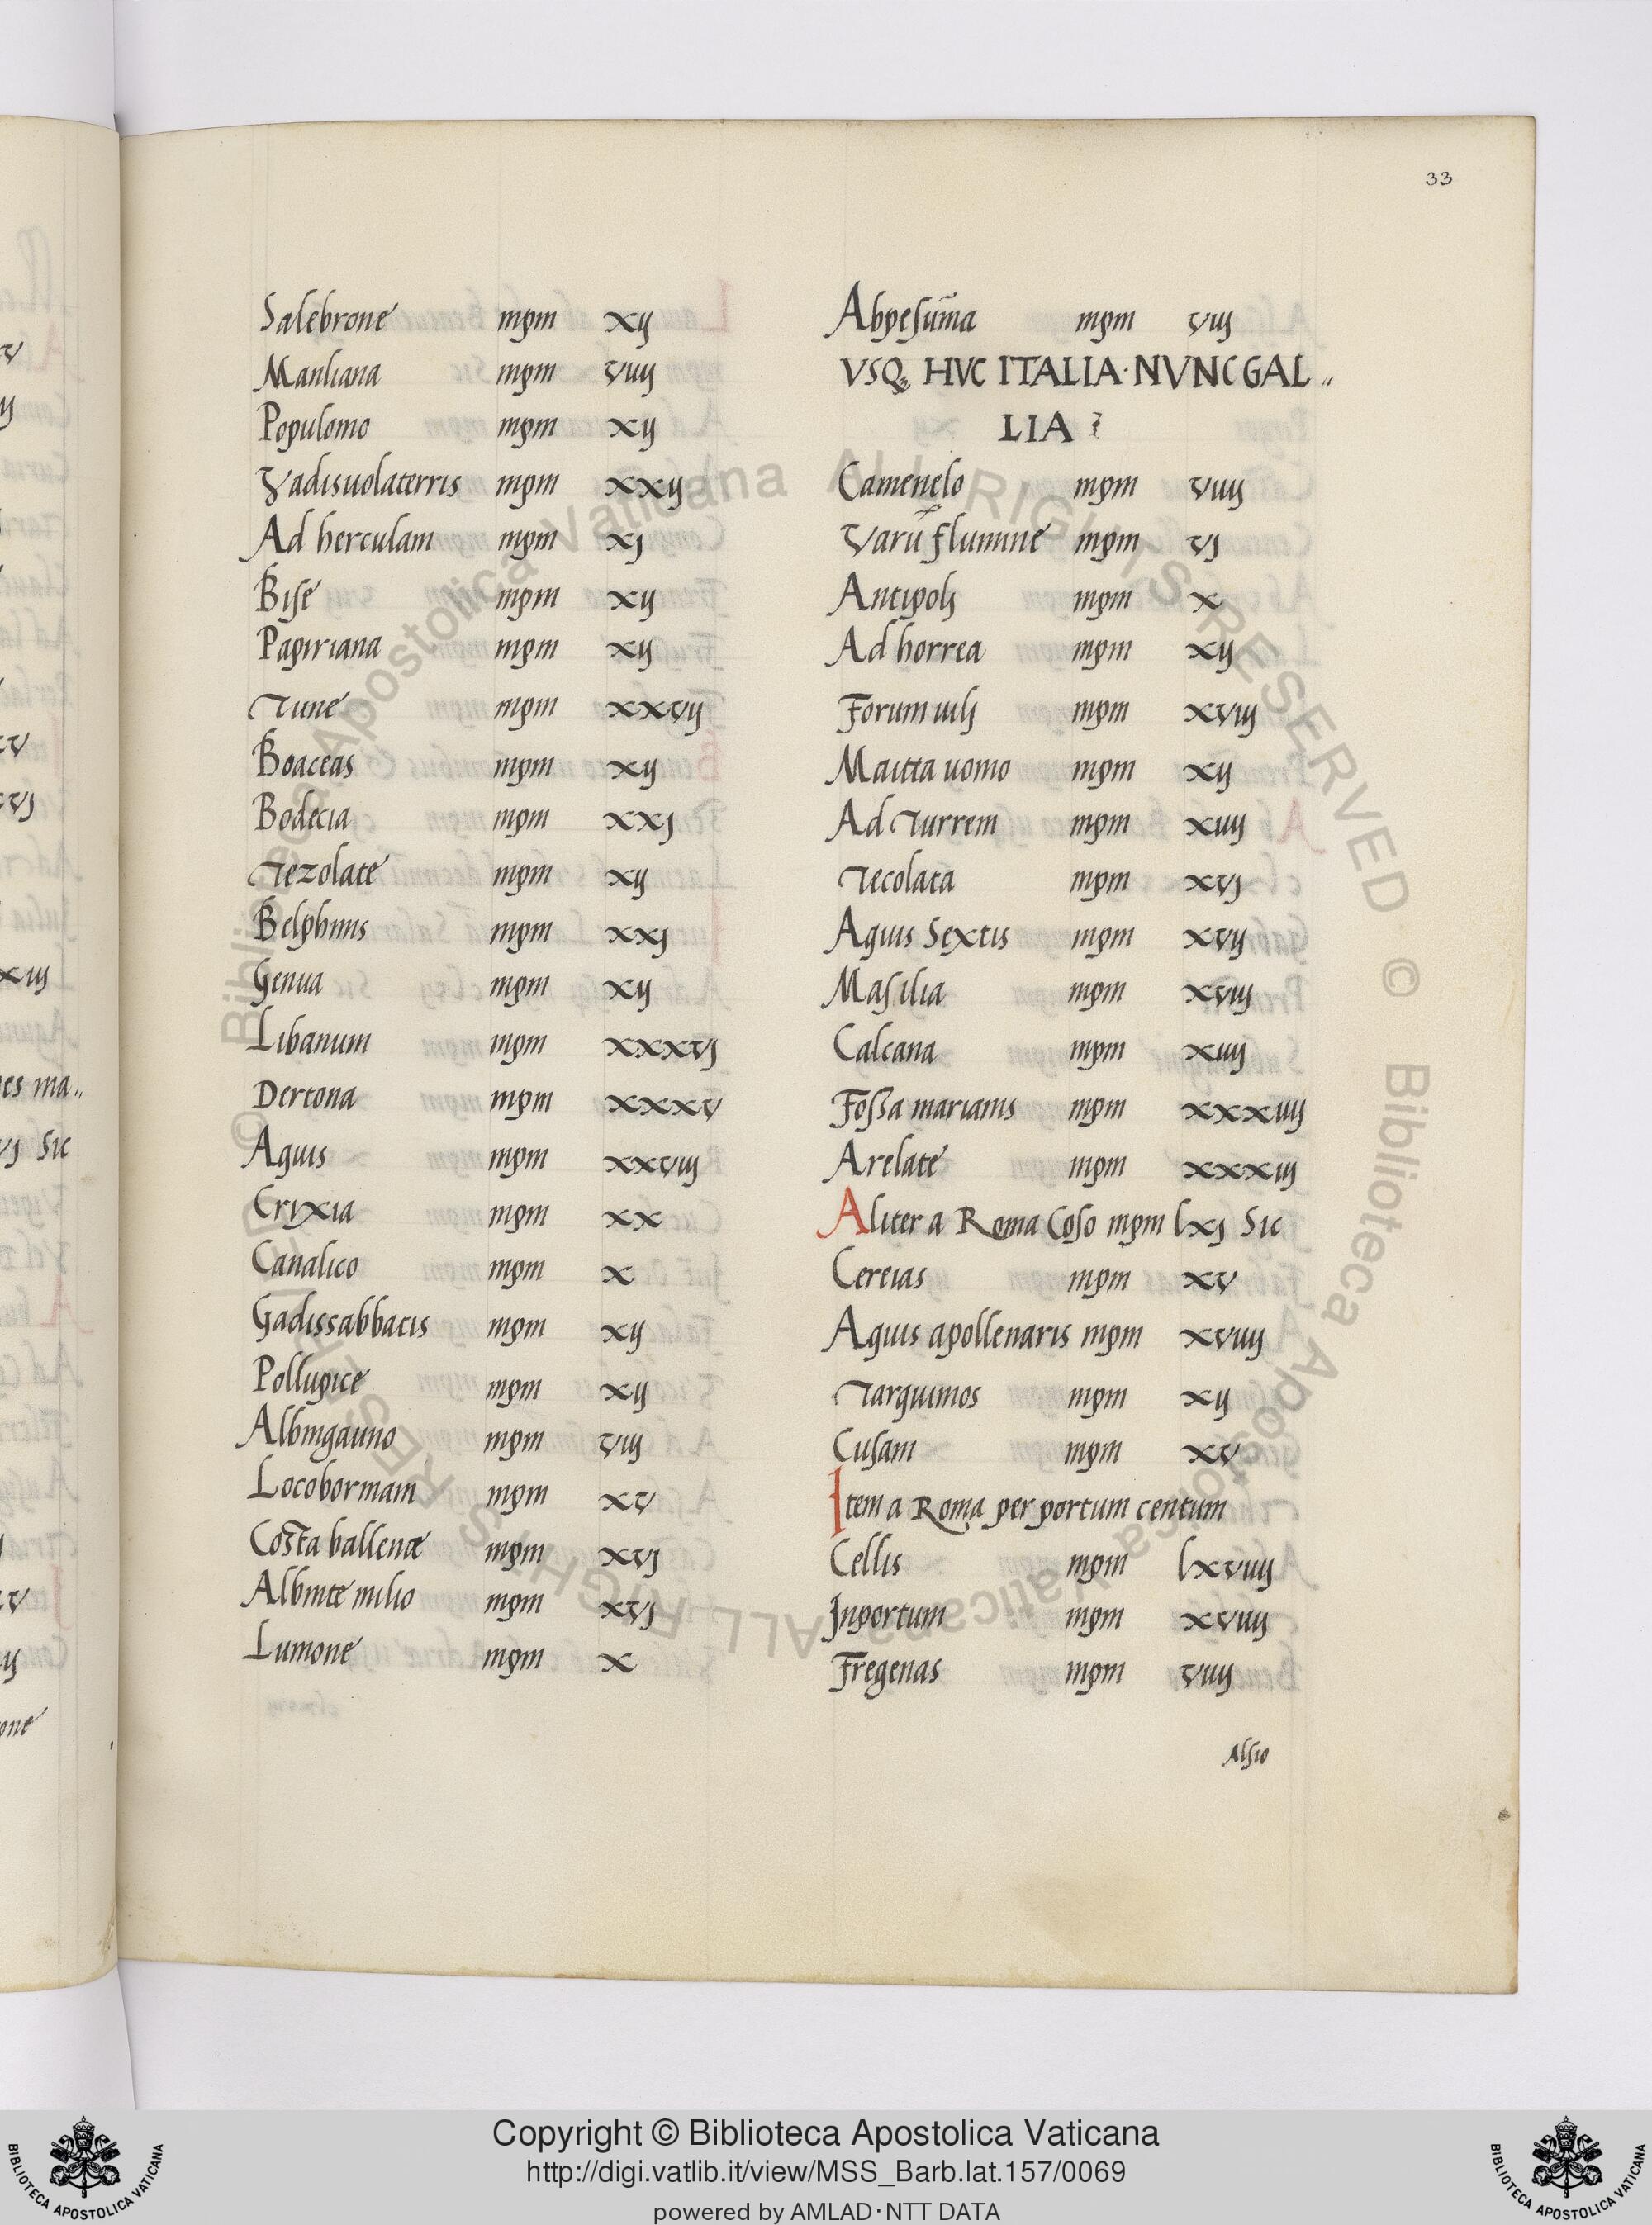 33
Salebrone mpm xij
Manliana mpm viiij
Populomo mpm xij
Vadisuolaterris mpm xxij
Ad herculam mpm xj
Bise mpm xij
Papiriana mpm xij
Tune mpm xxvij
Boaceas mpm xij
Bodecia mpm xxj
Tezolate mpm xij
Belphinis mpm xxj
Genua mpm xij
Libanum mpm xxxvj
Dertona mpm xxxv
Aquis mpm xxviij
Crixia mpm xx
Canalico mpm x
Gadissabbatis mpm xij
Pollupice mpm xij
Albingauno mpm viij
Locobormam mpm xv
Costa ballenæ mpm xvj
Albinte milio mpm xvj
Lumone mpm x
Abpesum̄a mpm viij
VSQ; HVC ITALIA·NVNC GAL„
LIA
Camenelo mpm viiij
Varū flumine mpm vj
Antipolij mpm x
Ad horrea mpm xij
Forum iulij mpm xviij
Maitta uomo mpm xij
Ad Turrem mpm xiiij
Tecolata mpm xvj
Aquis Sextis mpm xvij
Masilia mpm xviij
Calcana mpm xiiij
Fossa marianis mpm xxxiiij
Arelate mpm xxxiij
Aliter a Roma Coso mpm lxj Sic
Cereias mpm xv
Aquis apollenaris mpm xviiij
Tarquinos mpm xij
Cusam mpm xv
Item a Roma per portum centum
Cellis mpm lxviiij
Inportum mpm xviiij
Fregenas mpm viiij
Alsio
Copyright © Biblioteca Apostolica Vaticana
http://digi.vatlib.it/view/MSS_Barb.lat.157/0069
powered by AMLAD·NTT DATA
BIBLIOTECA APOSTOLICA VATICANA
BIBLIOTECA APOSTOLICA VATICANA